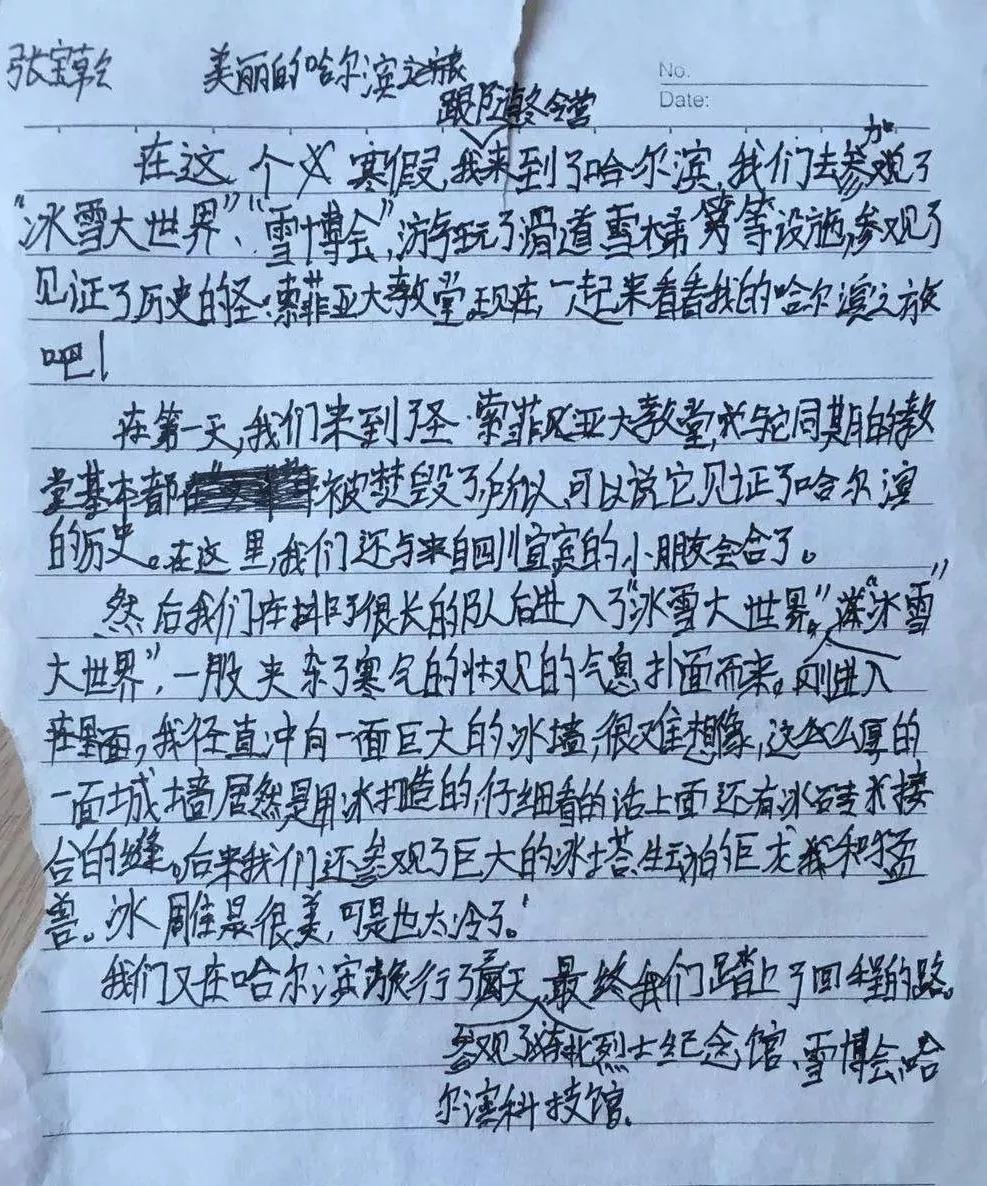 张宝乾 美丽的哈尔滨之旅
No.
Date:
跟随冬令营
在这个寒假,我来到了哈尔滨,我们去参观了
加
“冰雪大世界”、“雪博会”,游玩了滑道雪梯等等设施,参观了
见证了历史的圣·索菲亚大教堂,现在,一起来看看我的哈尔滨之旅
吧!
在第一天,我们来到了圣·索菲亚大教堂,与它同期的教
堂基本都在被焚毁了,所以,可以说它见证了哈尔滨
的历史。在这里,我们还与来自四川宜宾的小朋友会合了。
然后我们在排了很长的队后进入了“冰雪大世界”,“冰雪
大世界”,一股夹杂了寒气的壮观的气息扑面而来。刚进入
在里面,我径直冲向一面巨大的冰墙,很难想像,这么厚的
一面城墙居然是用冰打造的,仔细看的话上面还有冰砖接
合的缝。后来我们还参观了巨大的冰塔,生动的巨龙和猛
兽。冰雕是很美,可是也太冷了!
我们又在哈尔滨旅行了几天,最终我们踏上了回程的路。
参观了东北烈士纪念馆、雪博会、哈
尔滨科技馆。